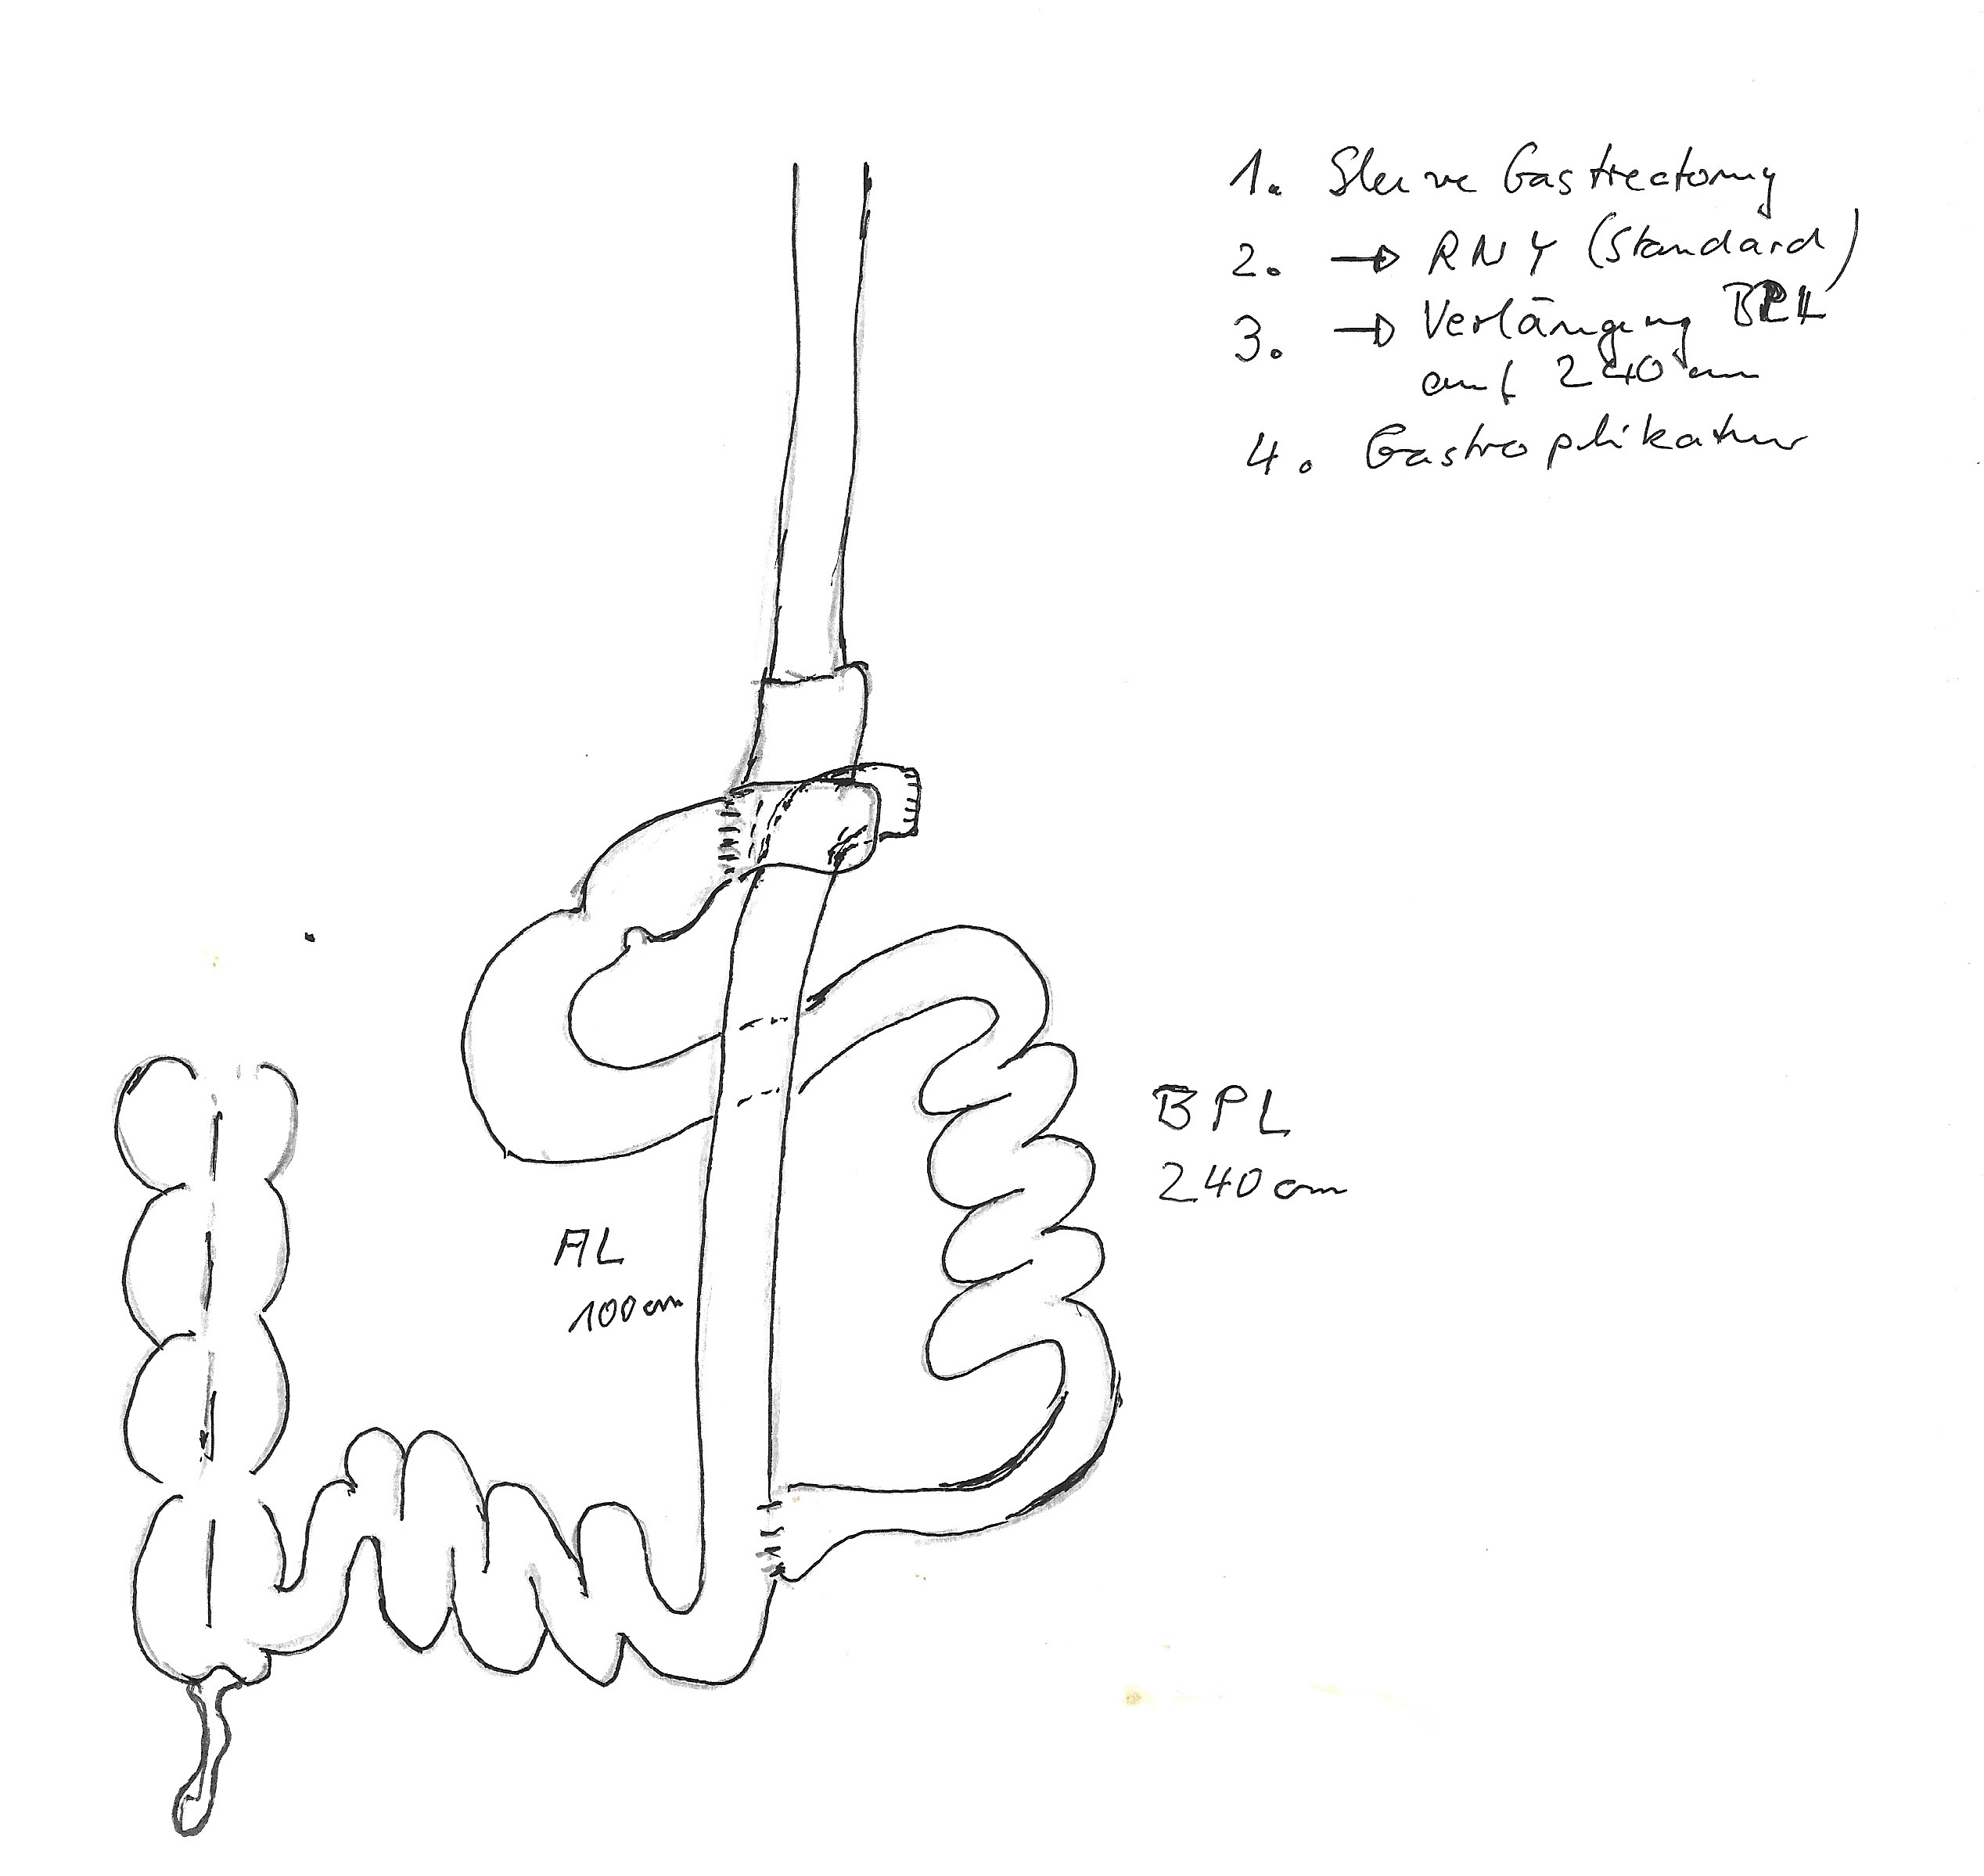 1. Sleeve Gastrectomy
2. → RNY (Standard)
3. → Verlängung BPL
auf 240 cm
4. Gastroplikatur
BPL
240 cm
AL
100 cm